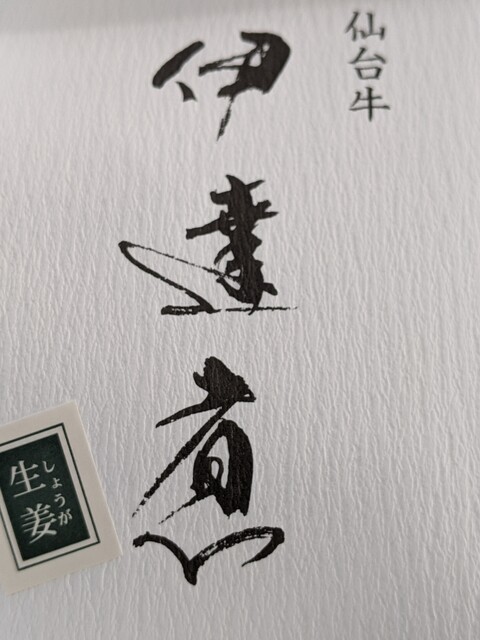 仙台牛
伊達煮
生姜
しょうが